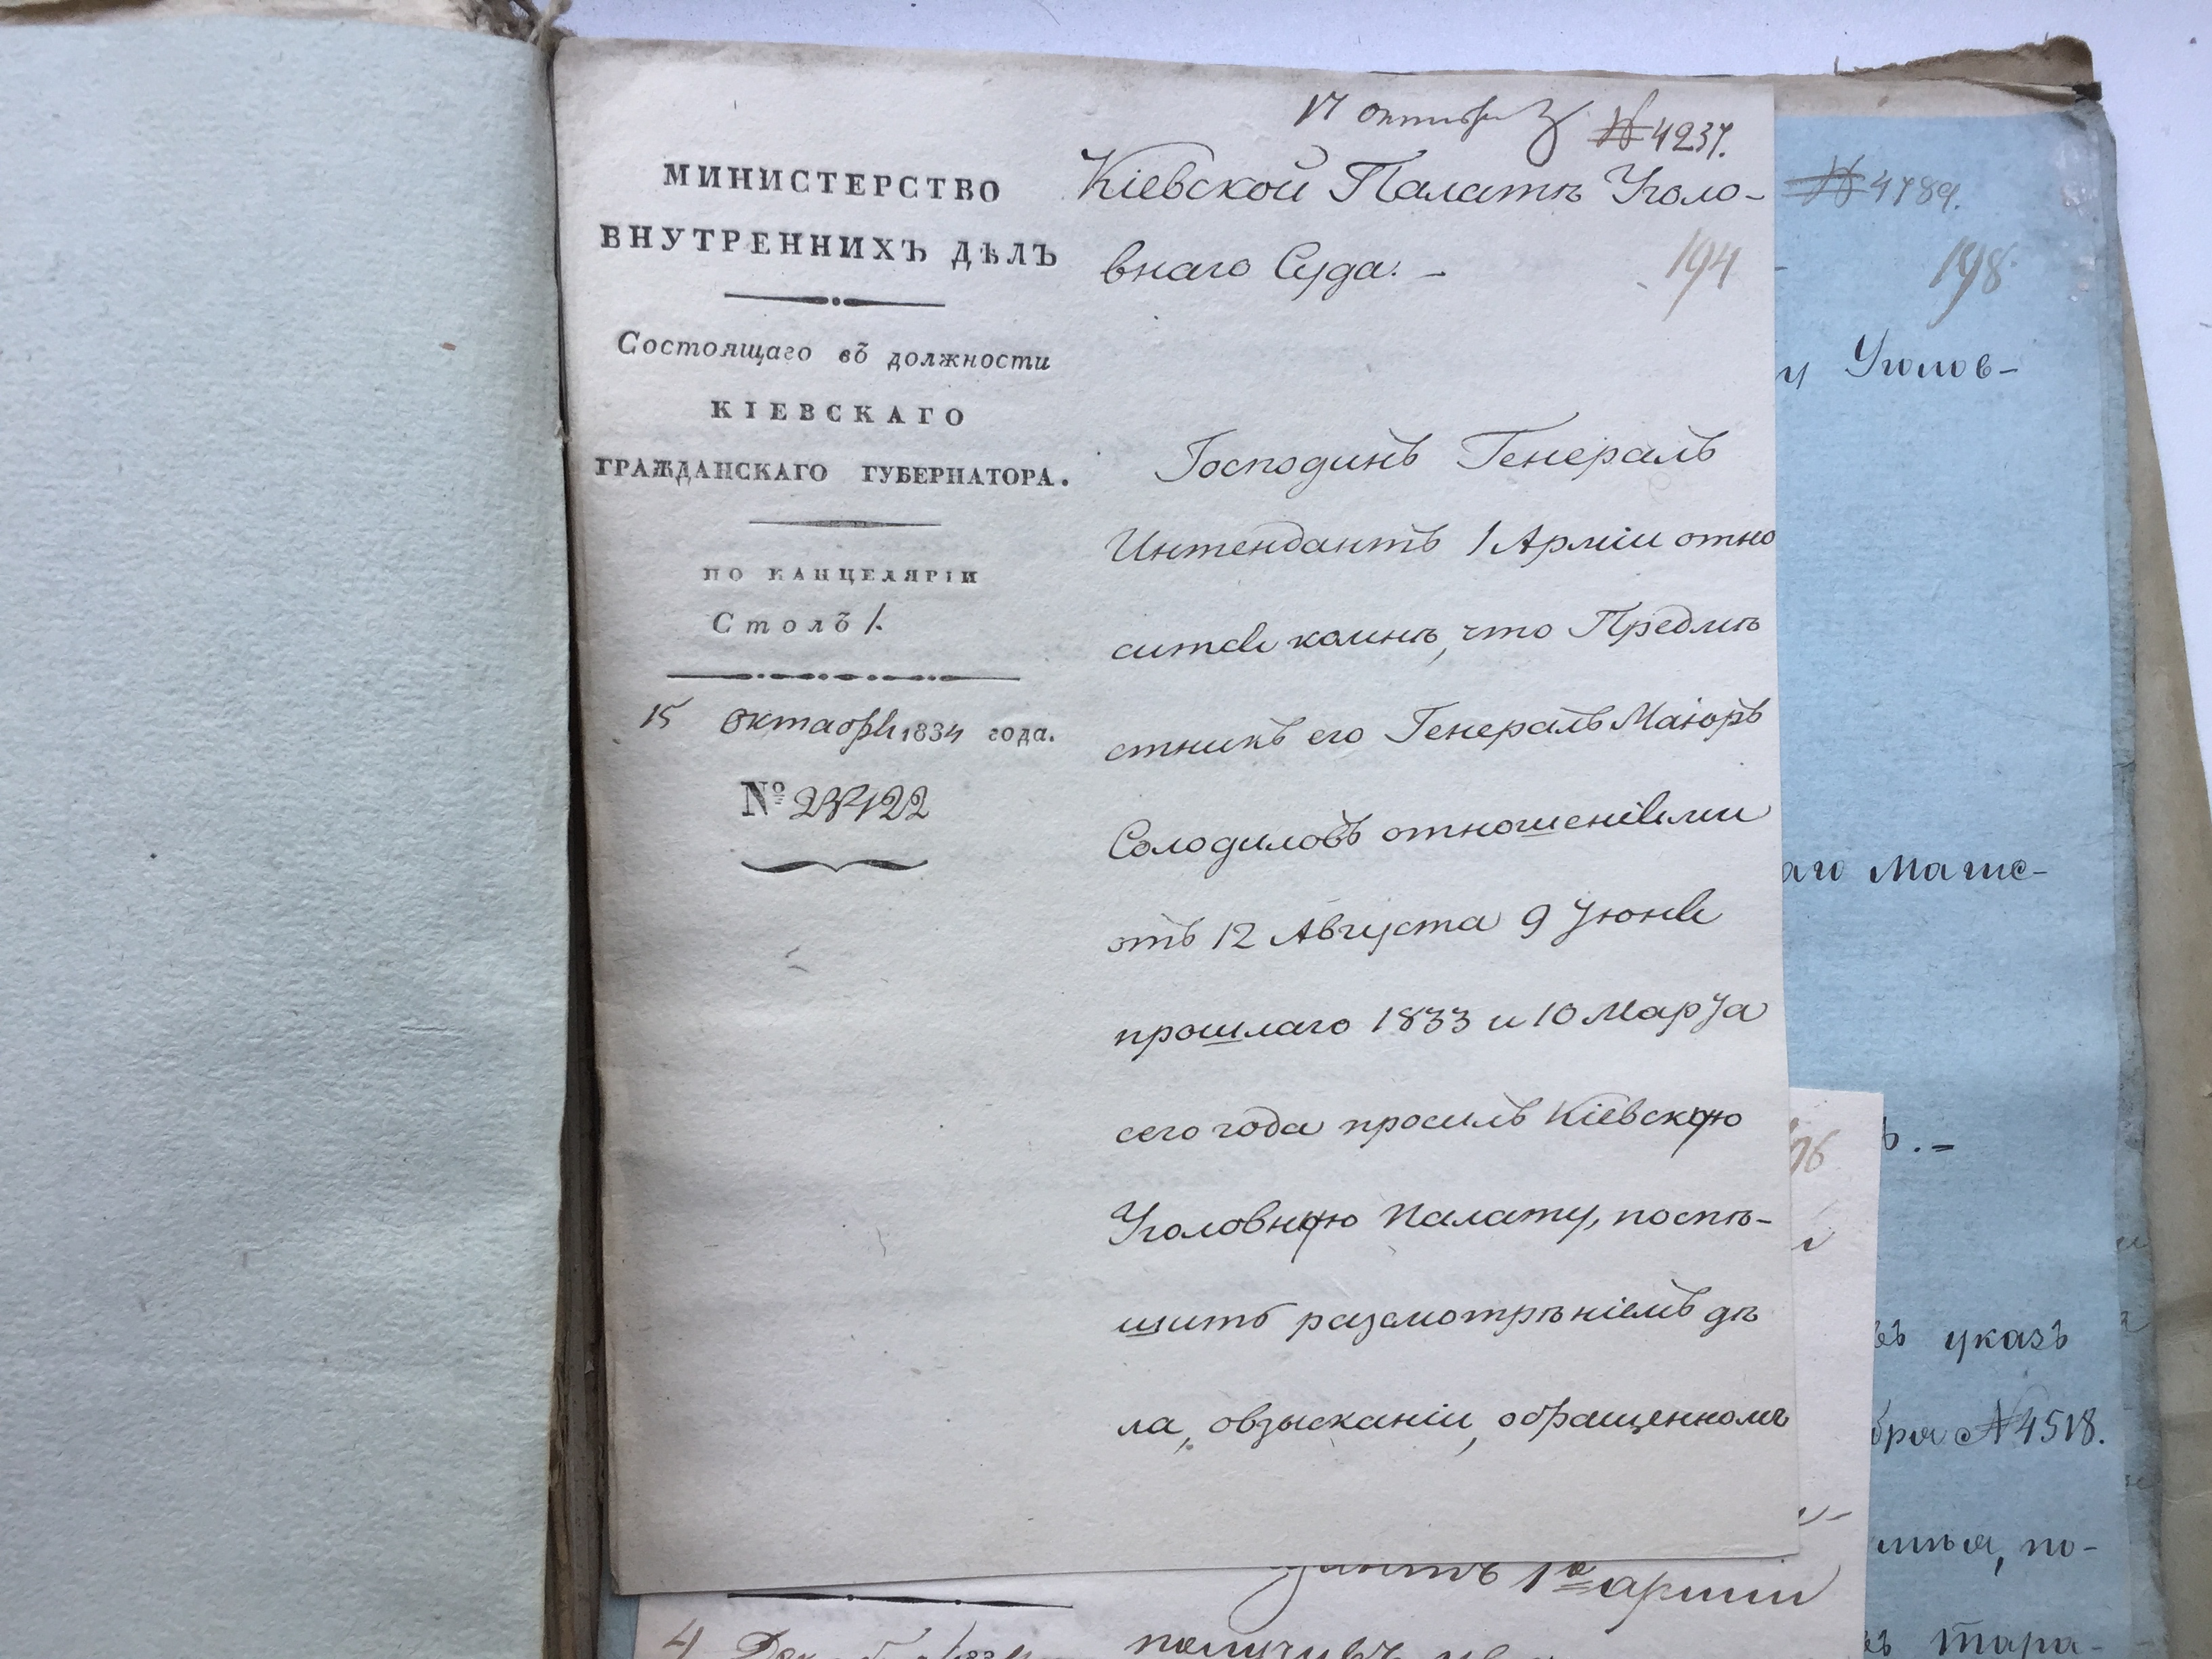 17 октября № 4237.
МИНИСТЕРСТВО
ВНУТРЕННИХЪ ДѢЛЪ
Состоящаго въ должности
КІЕВСКАГО
ГРАЖДАНСКАГО ГУБЕРНАТОРА.
ПО КАНЦЕЛЯРІИ
Столъ 1.
15 октября 1834 года.
№
Кіевской Палатѣ Уголо-
внаго Суда. -
194
Господинъ Генералъ
Интендантъ 1 Арміи отно
сится комнѣ, что Предмѣ
стникъ его Генералъ Маіоръ
Солодиловъ отношеніями
отъ 12 Августа 9 Іюня
прошлаго 1833 и 10 Марта
сего года просилъ Кіевскую
Уголовную Палату, поспѣ-
шить разсмотрѣніемъ дѣ
ла, овзысканіи, обращенномъ
№ 4789.
198
Уголов-
аго Маги-
ъ. -
указъ
бря № 4518.
по-
тара-
196
1й арміи
4
получивъ